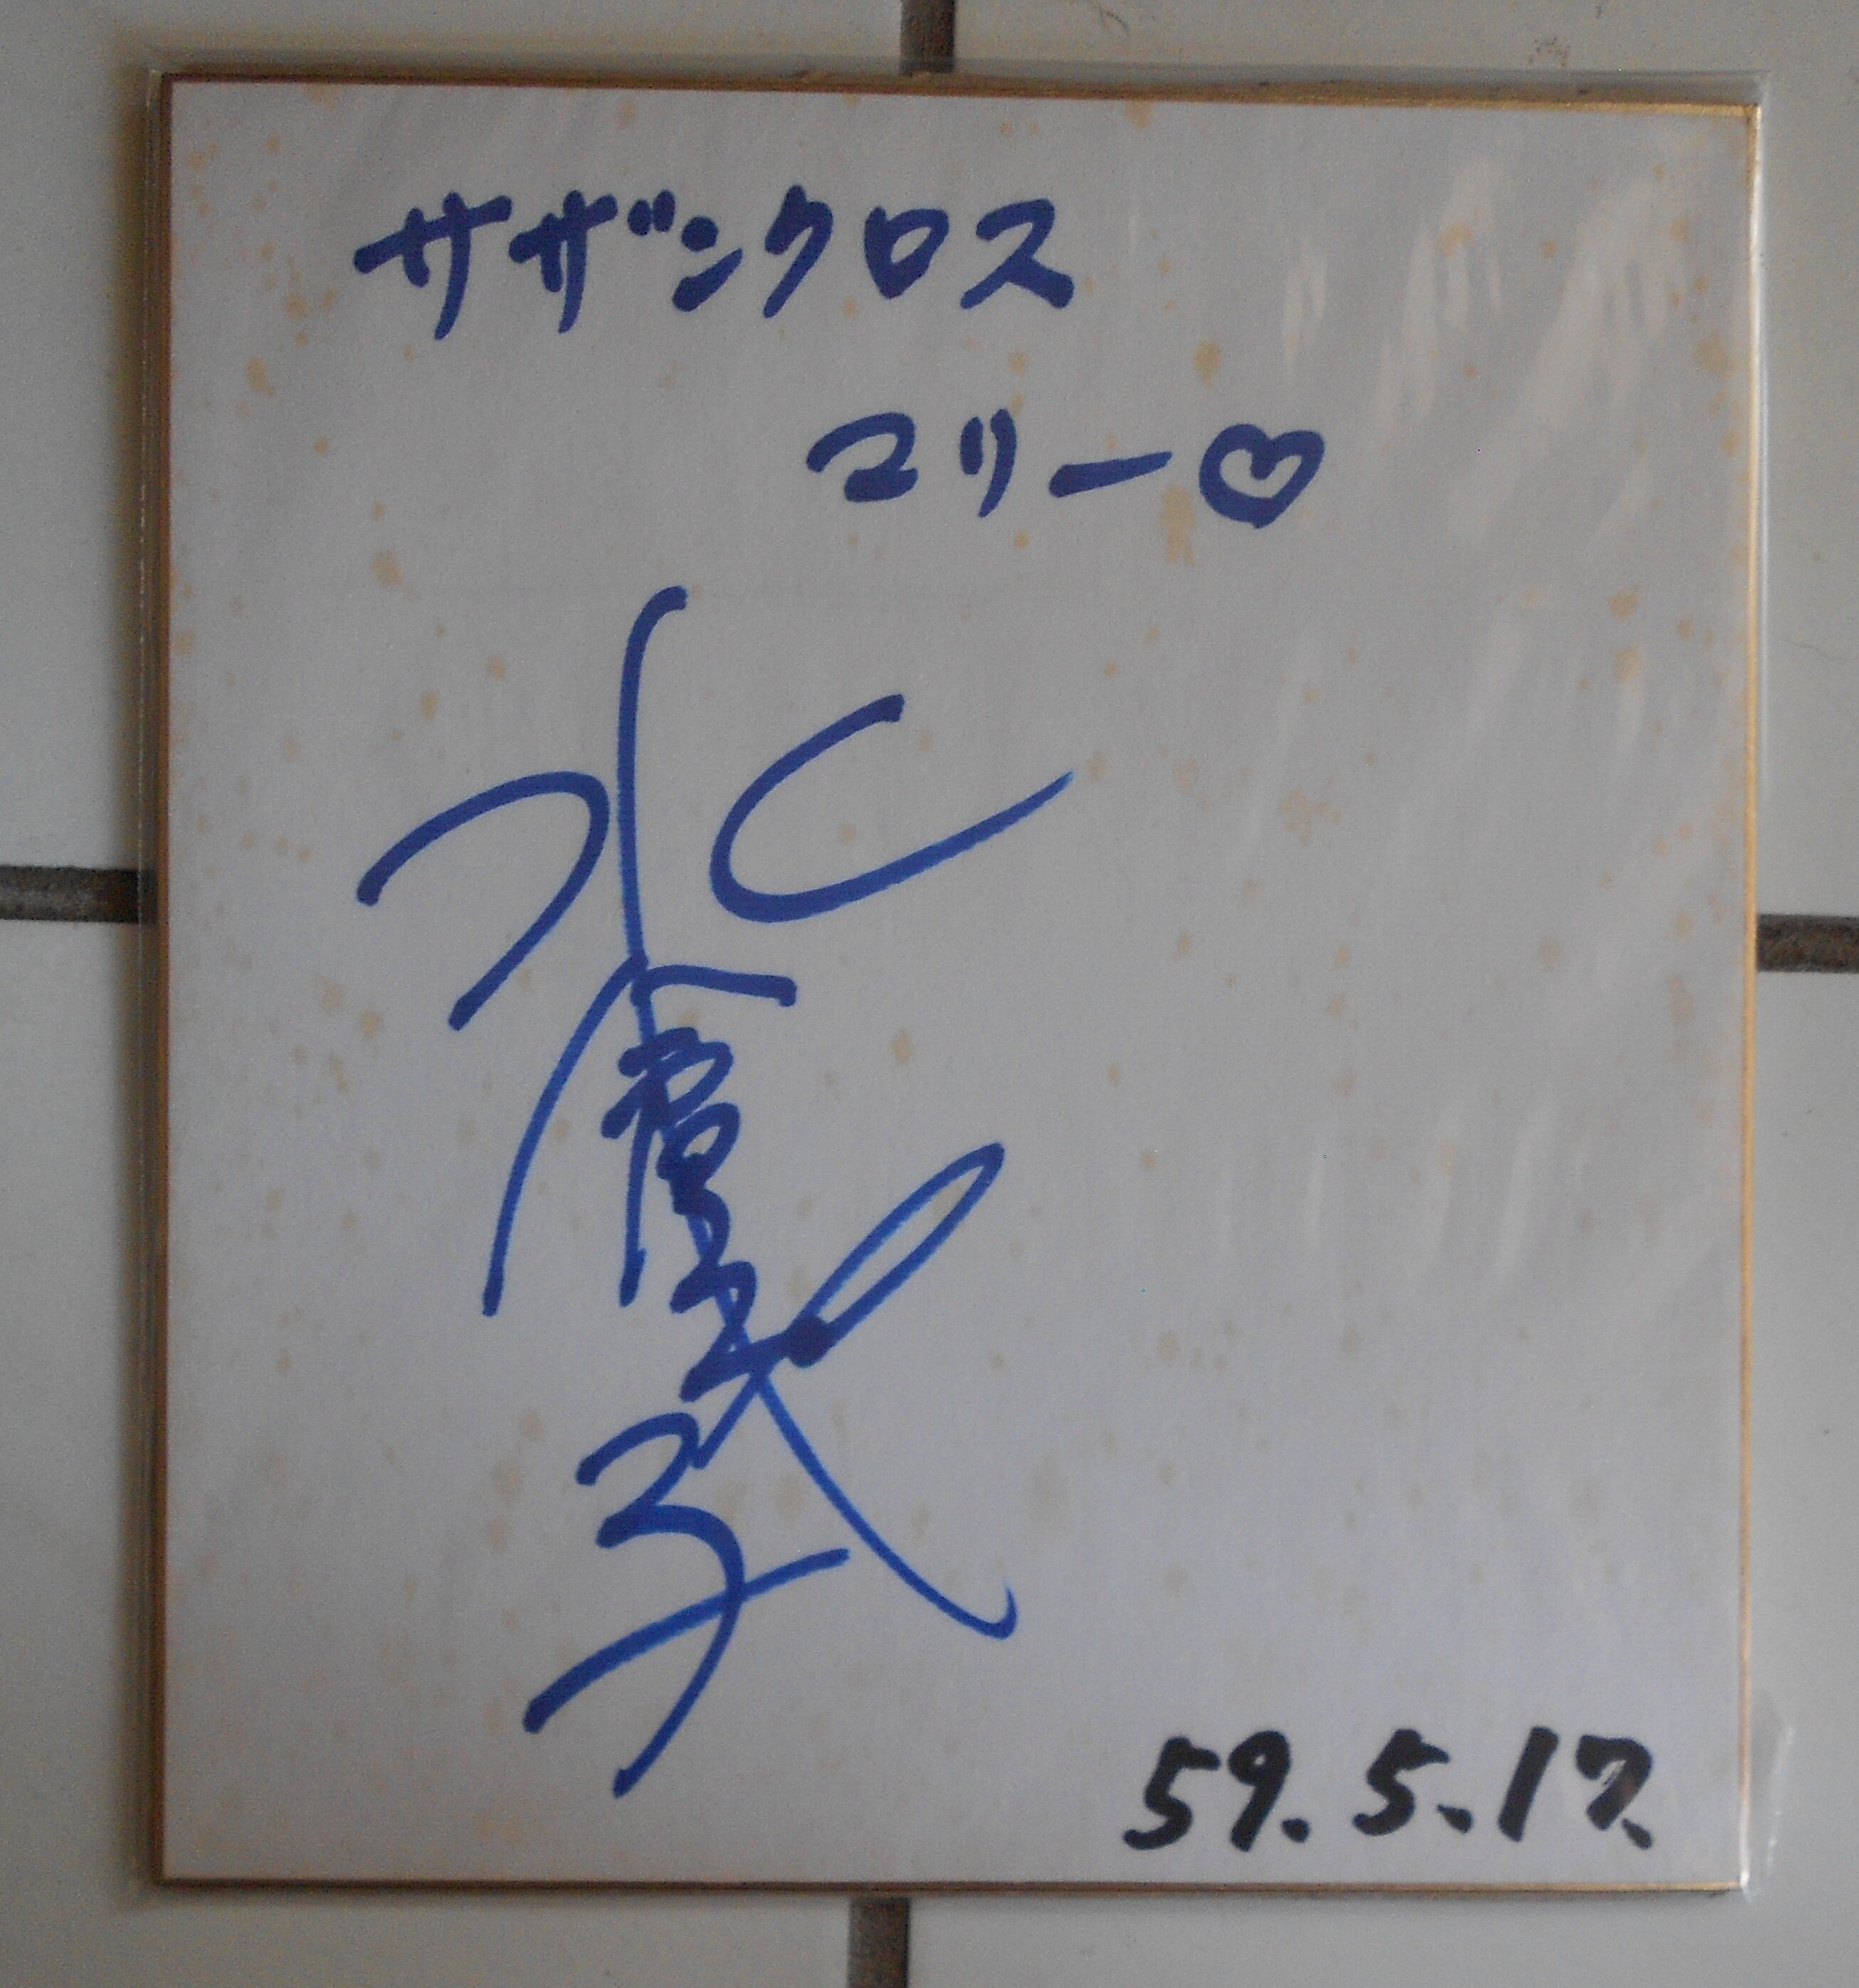 サザンクロス
マリー♡
水倉久美子
59.5.17.